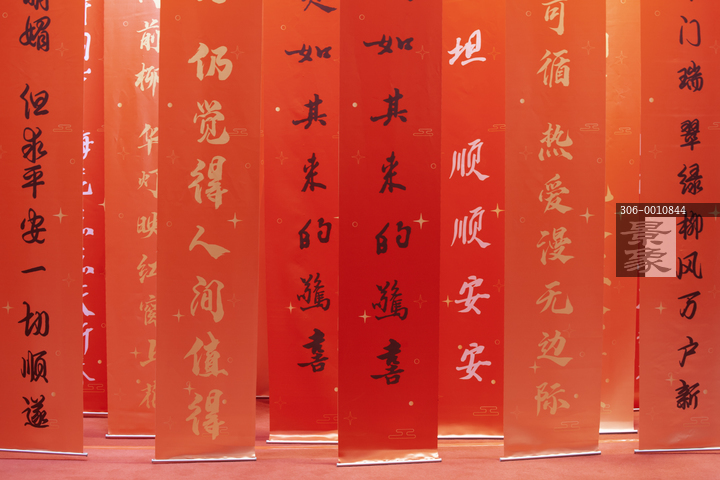 媚 但求平安一切顺遂
前柳 华灯映红窗上花
仍觉得人间值得
如其来的驚喜
如其来的驚喜
坦 顺顺安安
可循 热爱漫无边际
门瑞 翠绿柳风万户新
306-0010844
景象